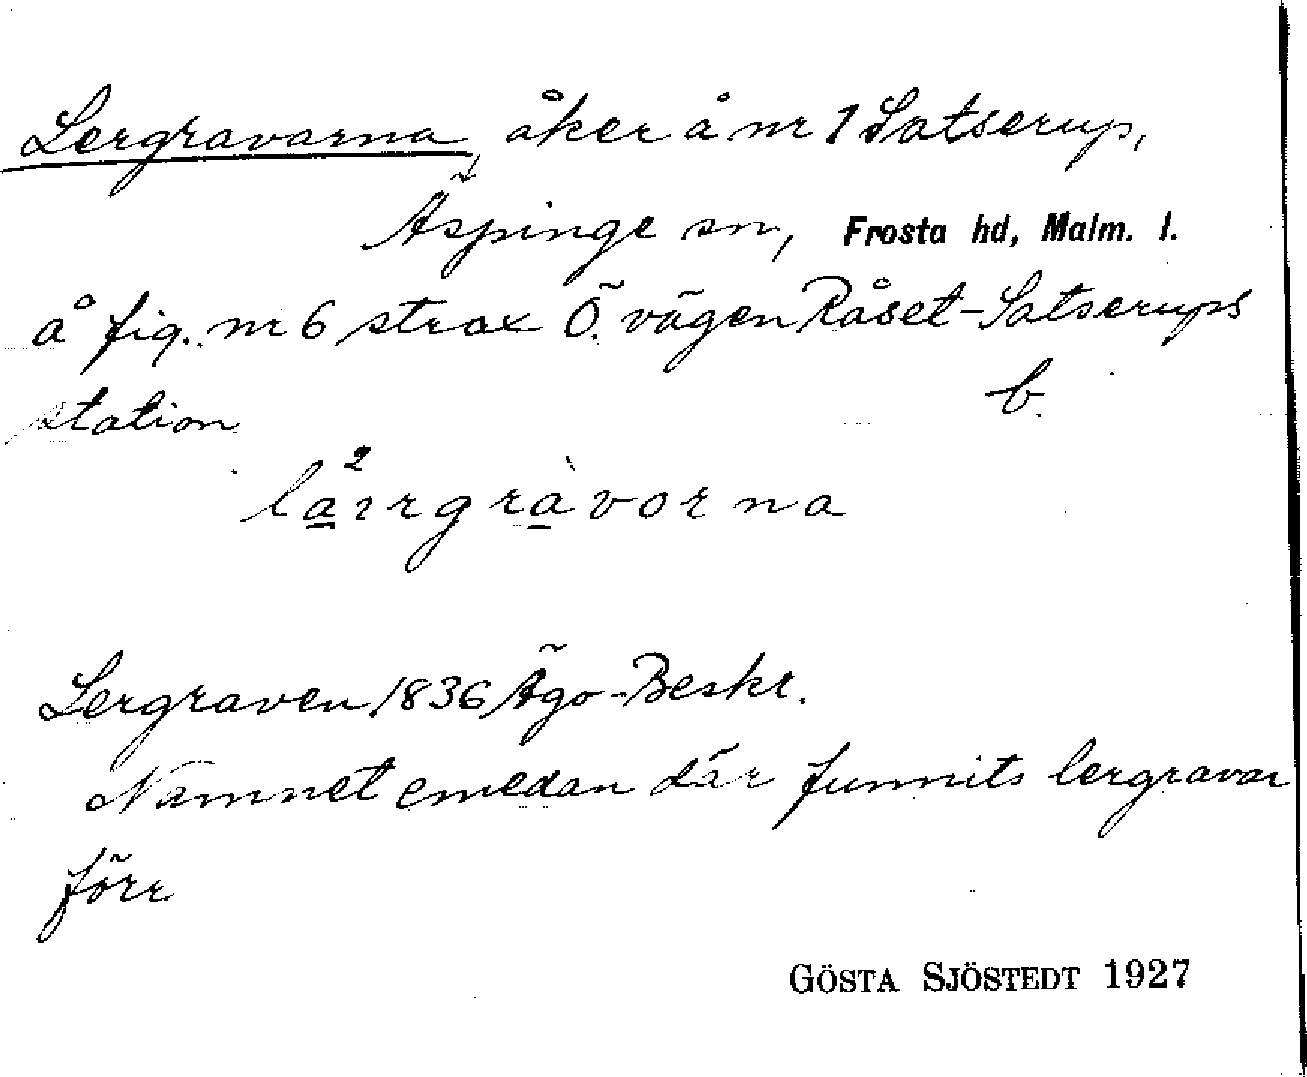 Lergravarna, åker å nr 1 Satserup,
Äspinge sn, Frosta hd, Malm. l.
å fig. nr 6 strax Ö. vägen Råset-Satserups
station b.
lårgràvorna
Lergraven 1836 Ägo-Beskr.
Namnet emedan där funnits lergravar
förr
GÖSTA SJÖSTEDT 1927